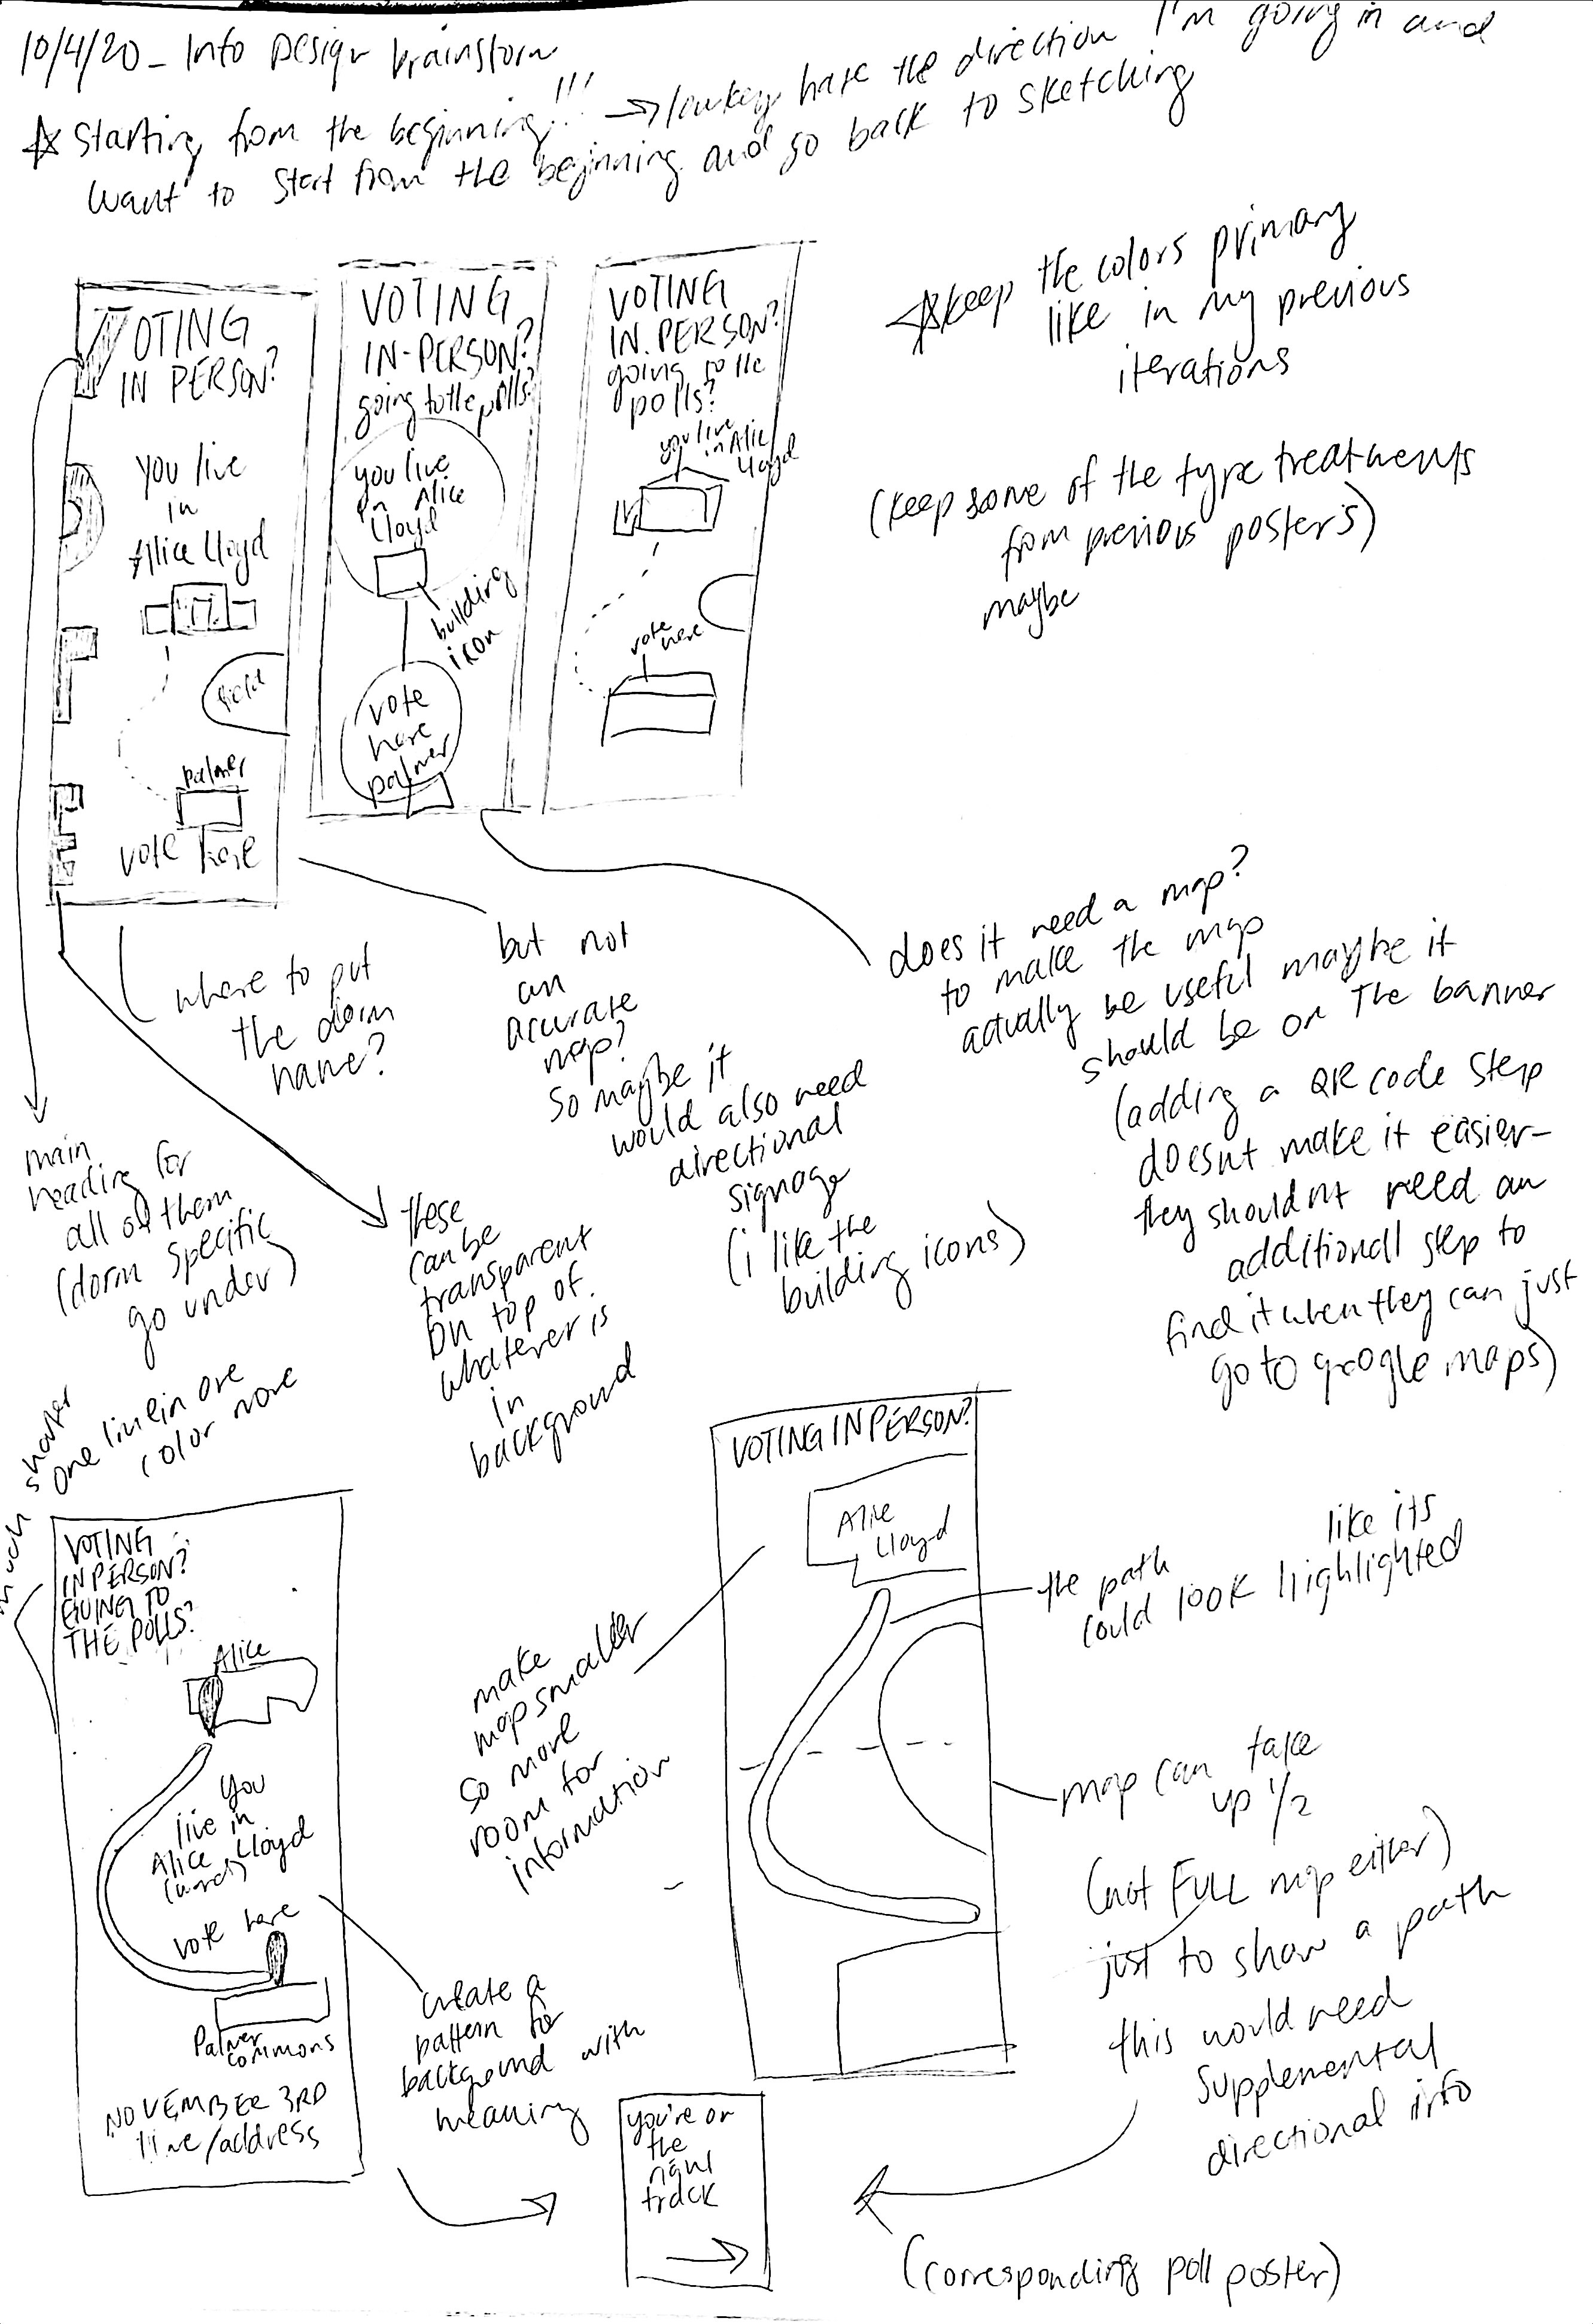 10/4/20 - Info Design brainstorm
☆ Starting from the beginning!!! → lowkey hate the direction I'm going in and
want to start from the beginning and go back to sketching
VOTING
IN PERSON?
you live
in
Alice Lloyd
field
palmer
vote here
VOTING
IN-PERSON?
going to the polls?
you live
in Alice
Lloyd
building
icon
vote
here
palmer
VOTING
IN PERSON?
going to the
polls?
you live
in Alice
Lloyd
vote
here
☆ keep the colors primary
like in my previous
iterations
(keep some of the type treatments
from previous posters)
maybe
where to put
the dorm
name?
but not
an
accurate
map?
so maybe it
would also need
directional
signage
(i like the
building icons)
does it need a map?
to make the map
actually be useful maybe it
should be on the banner
(adding a QR code step
doesnt make it easier-
they shouldnt need an
additionall step to
find it when they can just
go to google maps)
main
heading for
all of them
(dorm specific
go under)
these
can be
transparent
on top of
whatever is
in
background
much shorter
one line in one
color more
VOTING
IN PERSON?
GOING TO
THE POLLS?
Alice
You
live in
Alice Lloyd
vote here
Palmer
commons
NOVEMBER 3RD
time/address
create a
pattern for
background with
meaning
make
map smaller
so more
room for
information
VOTING IN PERSON?
Alice
Lloyd
the path
could look
like its
highlighted
map can take
up 1/2
(not FULL map either)
just to show a path
this would need
supplemental
directional info
you're on
the
right
track
(corresponding poll poster)